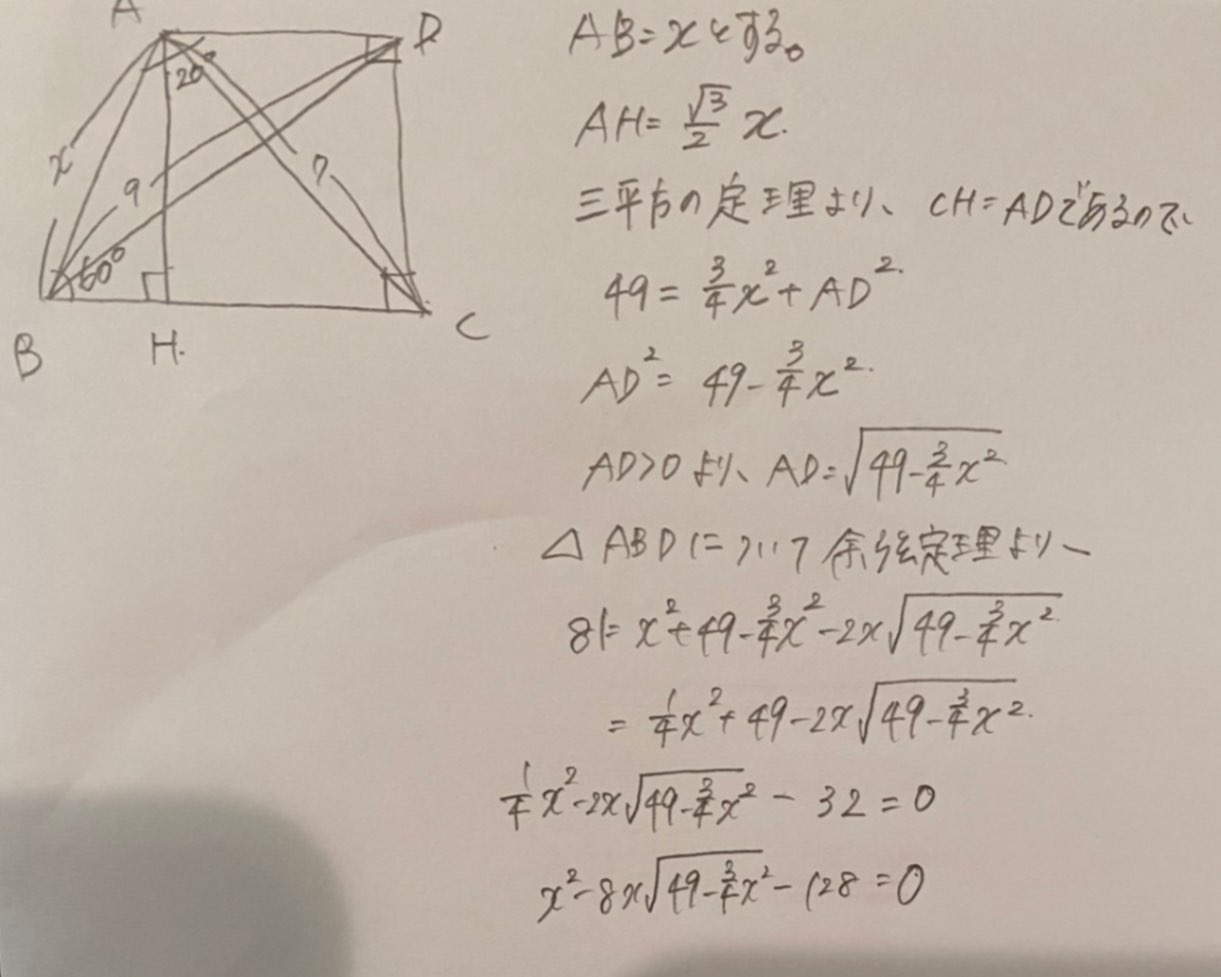 A
D
20°
x
9
7
60°
B
H.
C
AB=xとする。
AH=√3/2 x.
三平方の定理より、CH=ADであるので、
49=3/4x²+AD².
AD²=49-3/4x².
AD>0より、AD=√(49-3/4x²)
△ABDについて余弦定理より、
81=x²+49-3/4x²-2x√(49-3/4x²)
=1/4x²+49-2x√(49-3/4x²).
1/4x²-2x√(49-3/4x²)-32=0
x²-8x√(49-3/4x²)-128=0